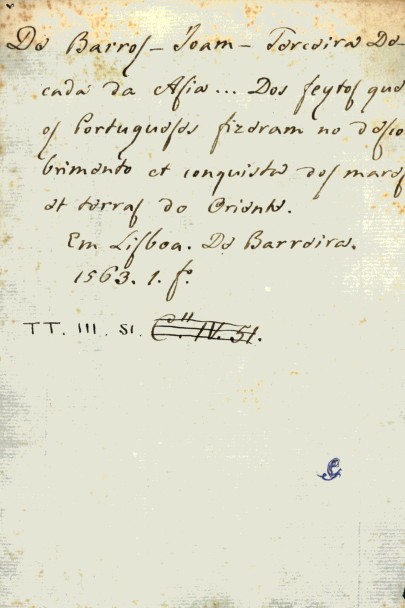 De Barros - Joam - Terceira De-
cada da Asia... Dos feytos que
os Portugueses fizeram no desco
brimento et conquista dos mares
et terras do Oriente.
Em Lisboa. De Barreira.
1563. 1. fº.
TT. III. 51. IV. 51.